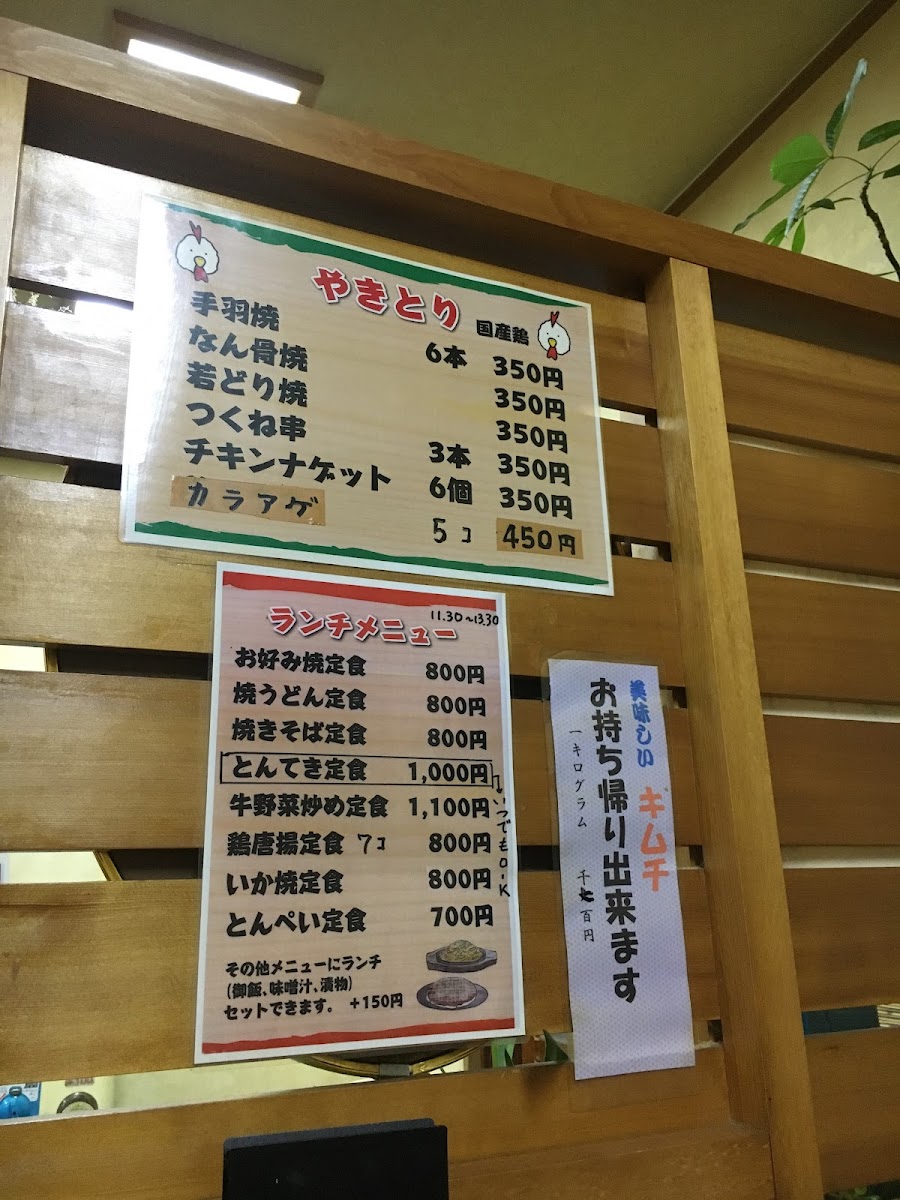 やきとり 国産鶏
手羽焼 6本 350円
なん骨焼 350円
若どり焼 350円
つくね串 3本 350円
チキンナゲット 6個 350円
カラアゲ 5コ 450円
ランチメニュー 11.30〜13.30
お好み焼定食 800円
焼うどん定食 800円
焼きそば定食 800円
とんてき定食 1,000円
いつでもO.K
牛野菜炒め定食 1,100円
鶏唐揚定食 7コ 800円
いか焼定食 800円
とんぺい定食 700円
その他メニューにランチ
(御飯、味噌汁、漬物)
セットできます。 +150円
美味しい キムチ
お持ち帰り出来ます
一キログラム 千七百円